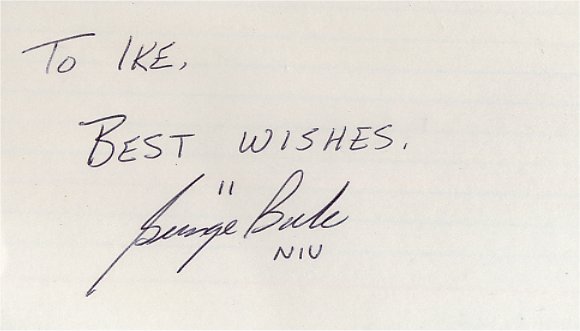 TO IKE,
BEST WISHES.
11
George Bork
NIU